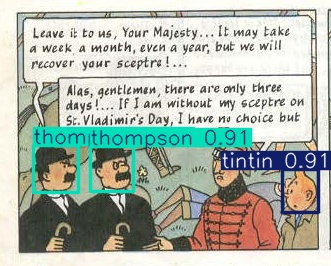 Leave it to us, Your Majesty... It may take
a week a month, even a year, but we will
recover your sceptre!...
Alas, gentlemen, there are only three
days!... If I am without my sceptre on
St. Vladimir's Day, I have no choice but
thom thompson 0.91
tintin 0.91